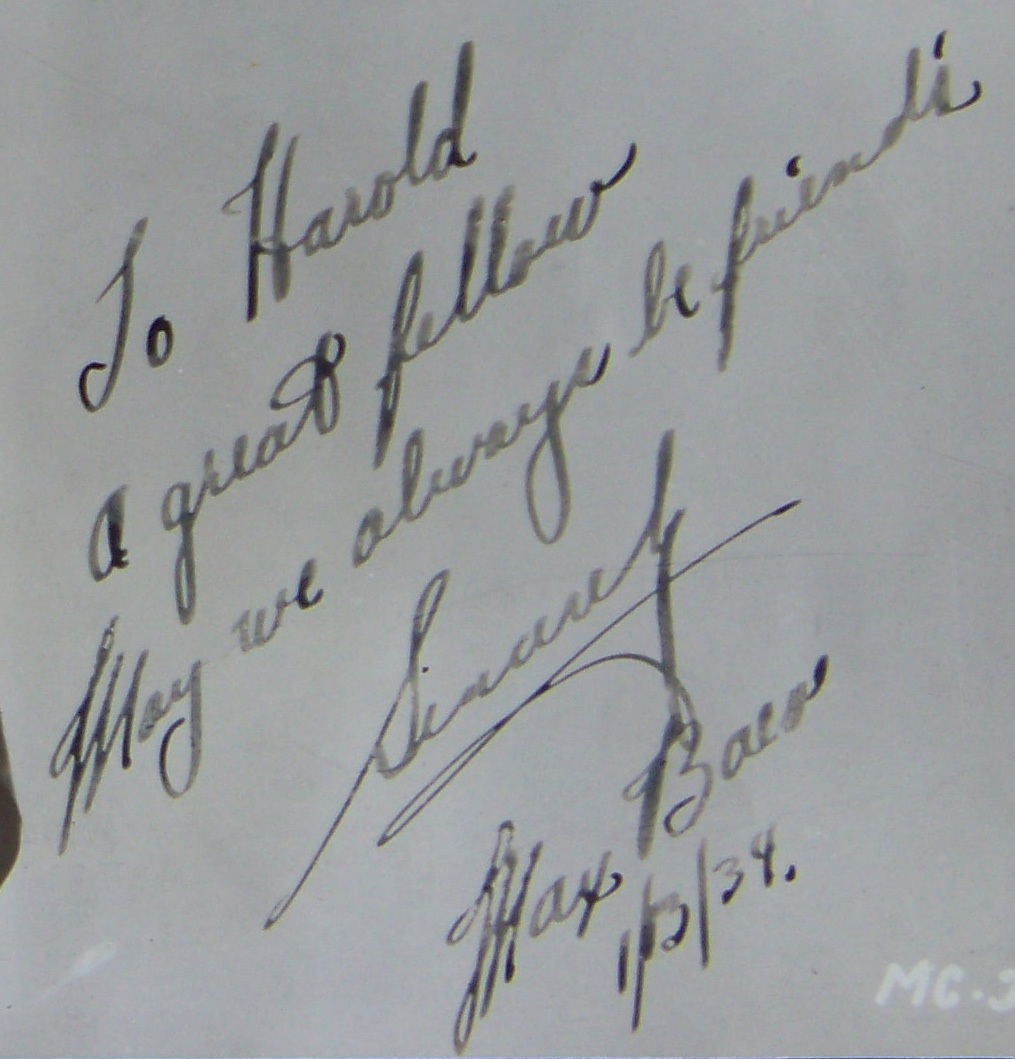 To Harold
A great fellow
May we always be friends
Sincerely
Max Baer
1/3/34.
MC.